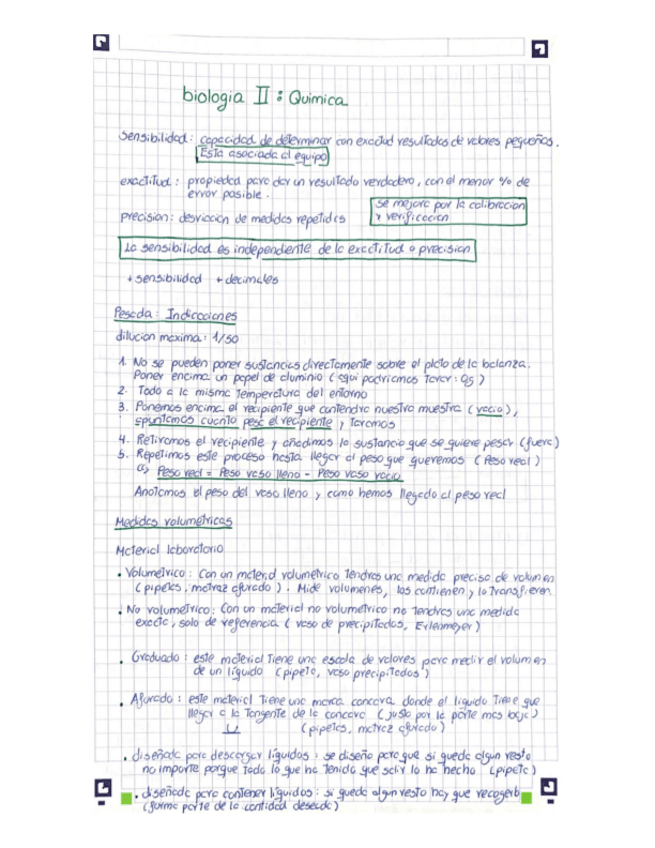 biologia II : Quimica
Sensibilidad : capacidad de determinar con exactud resultados de valores pequeños.
Esta asociada al equipo
exactitud : propiedad para dar un resultado verdadero, con el menor % de
error posible.
se mejora por la calibracion
y verificacion
precision : desviacion de medidas repetidas
La sensibilidad es independiente de la exactitud o precision
+ sensibilidad + decimales
Pesada : Indicaciones
dilucion maxima : 1/50
1. No se pueden poner sustancias directamente sobre el plato de la balanza.
Poner encima un papel de aluminio (aqui podriamos tarar : 0g)
2. Todo a la misma temperatura del entorno
3. Ponemos encima el recipiente que contendra nuestra muestra (vacio),
apuntamos cuanto pesa el recipiente y taramos
4. Retiramos el recipiente y añadimos la sustancia que se quiere pesar (fuera)
5. Repetimos este proceso hasta llegar al peso que queremos (Peso real)
Peso real = Peso vaso lleno - Peso vaso vacio
Anotamos el peso del vaso lleno y como hemos llegado al peso real
Medidas volumetricas
Material laboratorio
• Volumetrico : Con un material volumetrico tendras una medida precisa de volumen
(pipetas, matraz aforado). Mide volumenes, los contienen y lo transfieren
• No volumetrico : Con un material no volumetrico no tendras una medida
exacta, solo de referencia (vaso de precipitados, Erlenmeyer)
• Graduado : este material tiene una escala de valores para medir el volumen
de un líquido (pipeta, vaso precipitados)
• Aforado : este material tiene una marca concava donde el liquido tiene que
llegar a la tangente de la concava (justo por la parte mas baja)
(pipetas, matraz aforado)
• diseñado para descargar líquidos : se diseña para que si queda algun resto
no importe porque todo lo que ha tenido que salir lo ha hecho (pipeta)
• diseñado para contener líquidos : si queda algun resto hay que recogerlo
(forma parte de la cantidad deseada)